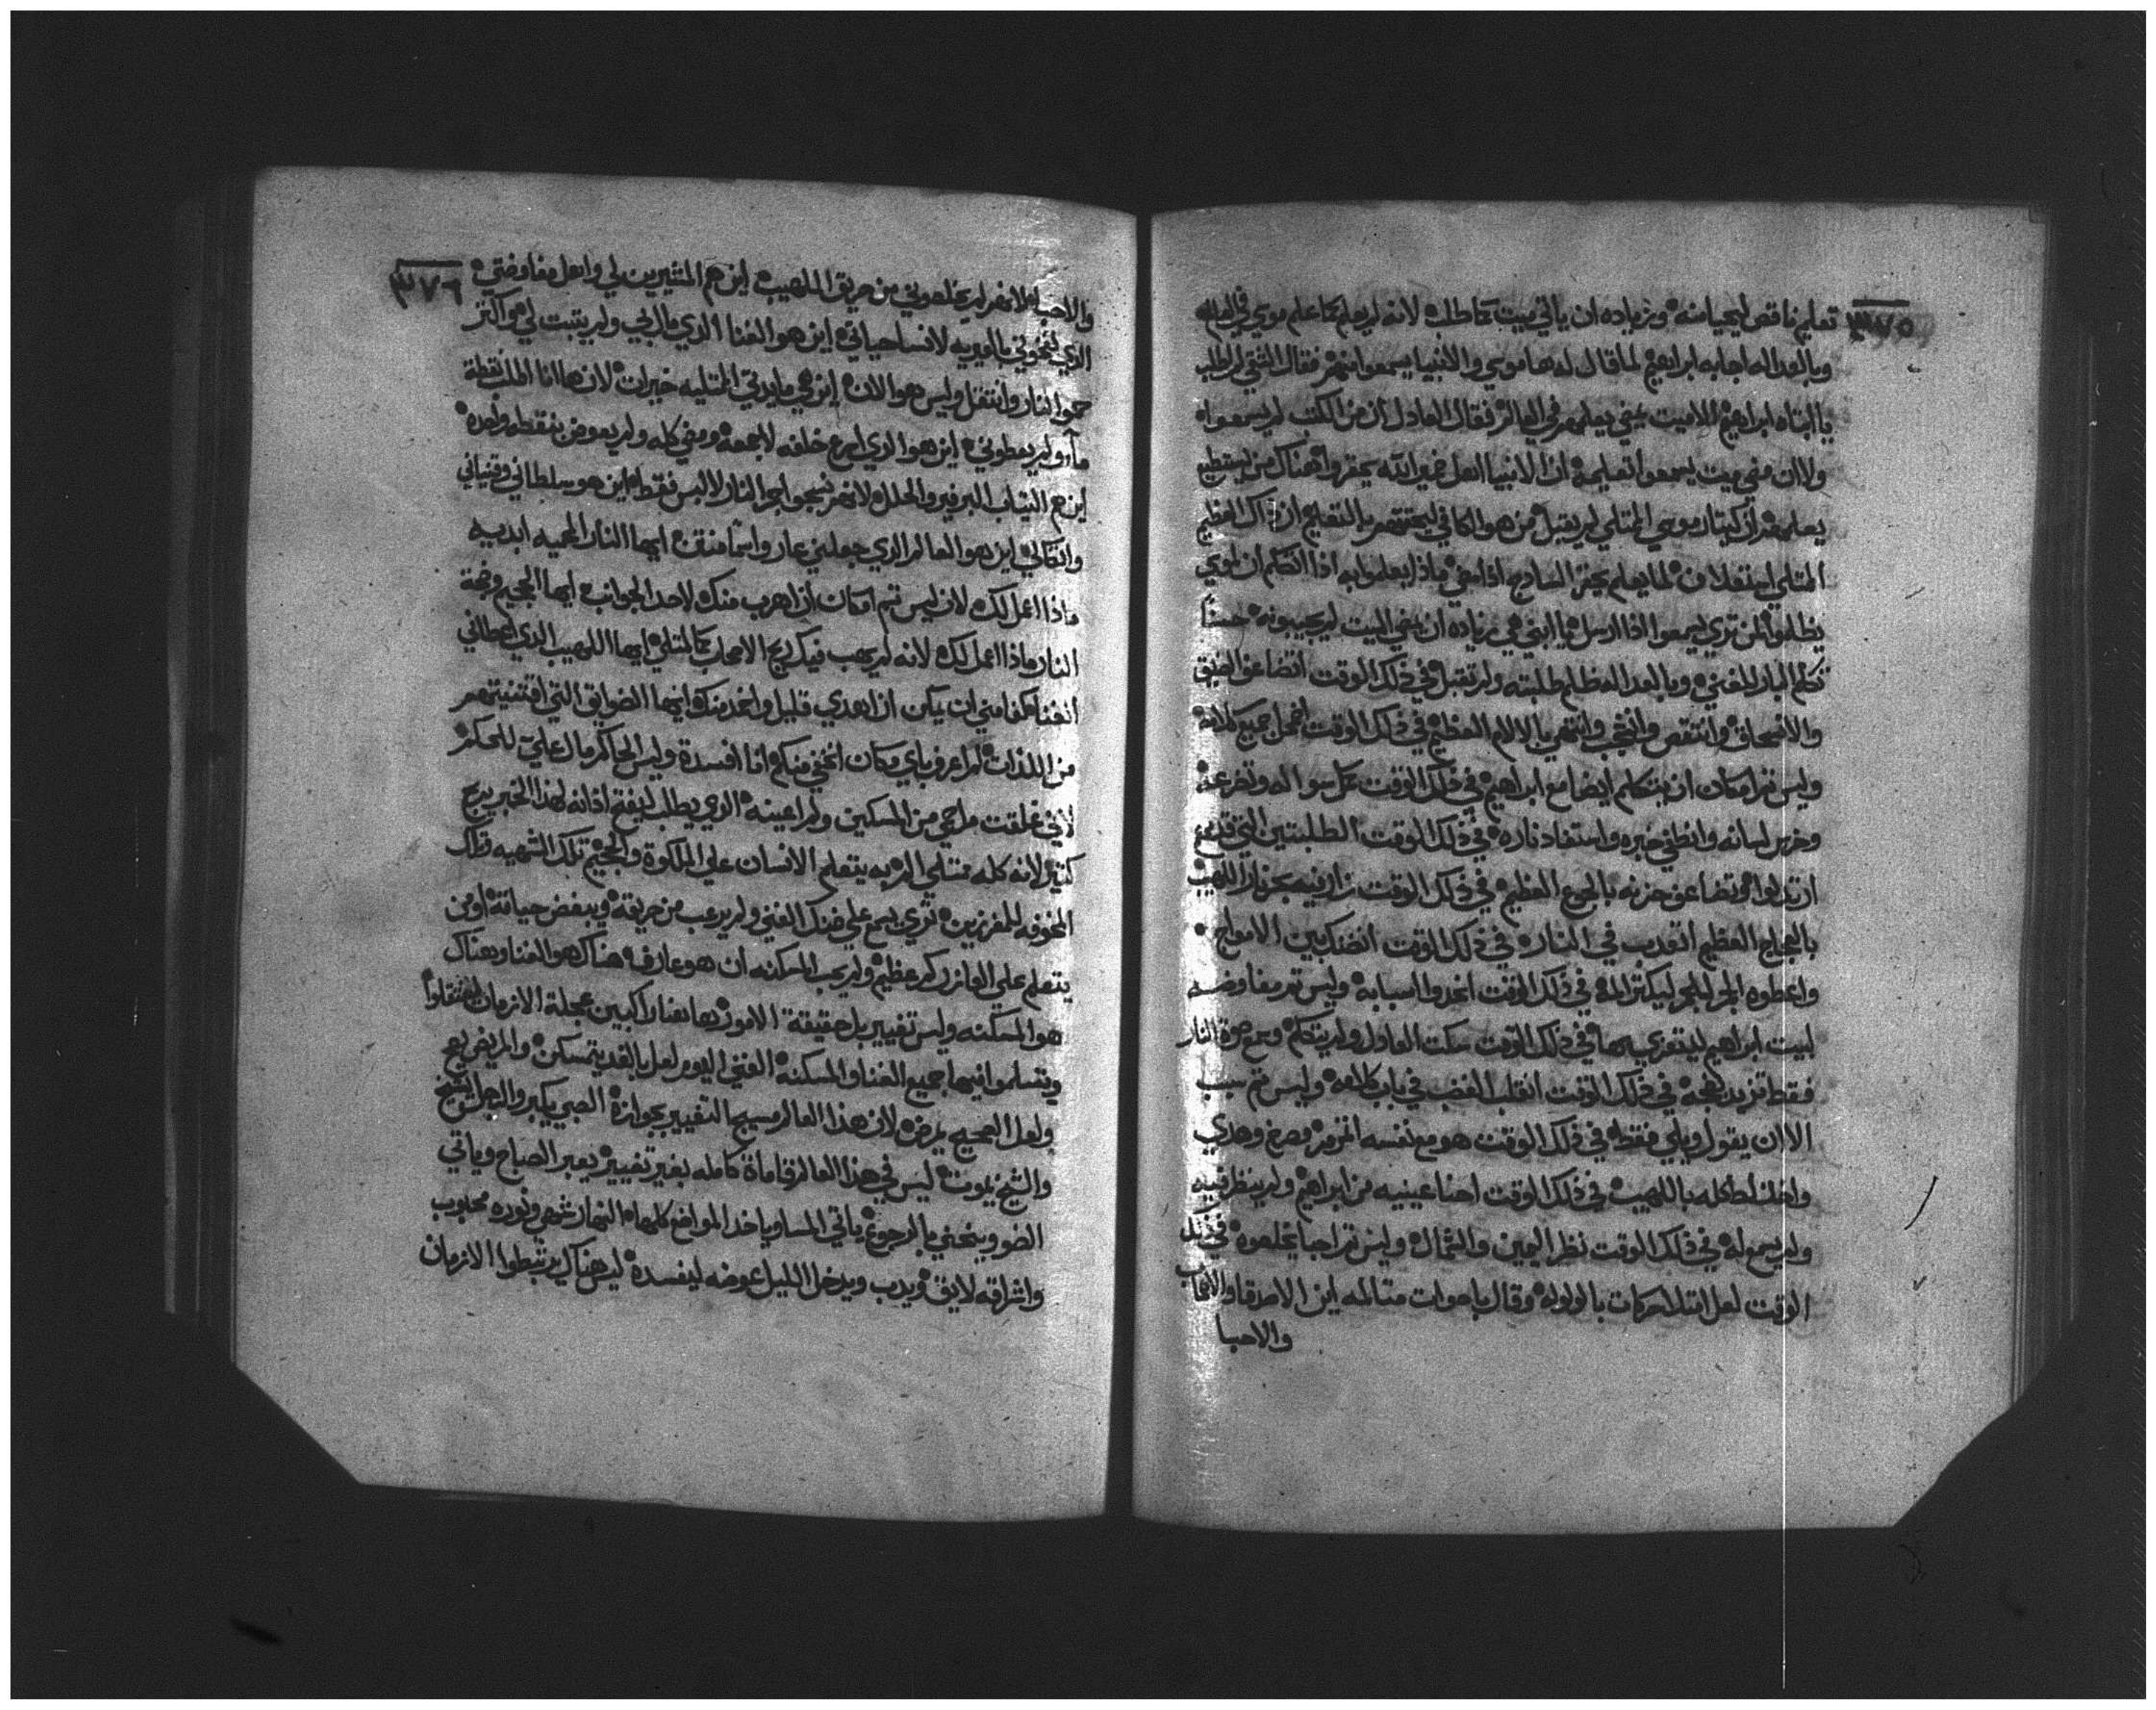 ٣٧٥
تعليم ناقص ليحيا منه وزياده ان ياتي ميت كما طلب لانه لم يعلم كما علم موسي في العالم
وبالعداله اجابه ابراهيم لما قال له ها موسي والانبيا يسمعوا منهم فقال الشقي لم اطلب
يا ابتاه ابراهيم الا ميت يمضي يعلمهم في العالم فقال العادل ان من الكتب لم يسمعوا
ولا ان مضي ميت يسمعوا تعليمه ان الانبيا افعل ضمير الله يحقروا هناك من يستطيع
يعلمهم ان كيتار موسي المتلي لم يقبل من هو الكافي ليحتقهم بالتعليم ان ذاك العظيم
المتلي استعلان لما يعلم يحقر السادج اذا مضي ماذا يعلموا به اذا اتكلم ان لموسي
يظلموا لمن تري يسمعوا اذا ارسل يا ابني هي زياده ان يمضي الميت لم يجيبونه حسناً
تكلم البار للغني وبالعدل العظيم طلبته ولم تقبل في ذلك الوقت اتضاعف الضيق
والانسحاق وانتقص وانتحب وانتهي بالالام العظيم في ذلك الوقت اضمحل جميع كلامه
وليس تم امكان ان يتكلم ايضا مع ابراهيم في ذلك الوقت كمل سواله وتضرعه
وخرس لسانه وانطفي خبره واستفاد ناره في ذلك الوقت الطلبتين التي قدمهم
ارتدلوا وتضاعف حزنه بالجوع العظيم في ذلك الوقت زار فيه بحر نار اللهيب
بالعجاج العظيم اتعدب في النار في ذلك الوقت انضكبين الامواج
واعطوه الجمر للجمر ليكتر المه في ذلك الوقت اتخدوا اسبابه وليس تم مفاوضه
لبيت ابراهيم ليتعزي بها في ذلك الوقت سكت العادل ولم يتكلم وسمع صوت النار
فقط تزيد لهجه في ذلك الوقت انغلب الغضب في باب كلامه وليس تم سبب
الا ان يقول ويلي فقط في ذلك الوقت هو مع نفسه اتزمر وصرخ وهدي
واختلط كله باللهيب في ذلك الوقت احنا عينيه من ابراهيم ولم ينظر فيه
ولم يسمع له في ذلك الوقت نظر اليمين والشمال وليس تم احبا يخلصوه في ذلك
الوقت لعل ابتدا حركات بالولوله وقال باصوات متالمه اين الاصدقا والاصحاب
والاحبا
٣٧٦
والاحبا لانهم لم يخلصوني من حريق اللهيب اين هم المشيرين لي وافعل مفاوضتي
الذي لتخوني بالميريه لانسا حياتي اين هو الغنا الذي مال بي ولم يتبت لي هو اكتر
حموا النار وانتقل وليس هو الان اين هي مايدتي الممتليه خيرات لان ها انا اطلب نقطة
مآء ولم يعطوني اين هو الذي اسرع خلفه لاجمعه ومضي كله ولم يعوض بنقطه واحده
اين هم التياب البرفير والحلل لانهم نسجوا جمر النار لالبس فقط اين هو سلطاني وقنياني
واتكالي اين هو العالم الذي جعلني عار واشا منقن ايها النار المحميه ابديه
ماذا اعمل لك لان ليس تم امكان ان اهرب منك لاحد الجوانب ايها الجحيم وضعة
النار ماذا اعمل لك لانه لم يهب فيك ريح الامحاب كالمتلي ايها اللهيب الذي اعطاني
الغنا كفا مني ان يكن ان اهدي قليل واخد منك ايها الضوايق التي اقتنيتهم
من اللذات لم اعرف باي مكان اختفي منكم انا افسدة وليس الحاكم مال علي للحكم
لاني غلقت مراحمي من المسكين ولم اعينه الوعي يطلب ليفتح اذانه لهذا الخبر يربح
كتير لانه كله متلي الربه يتعلم الانسان علي الملكوة والجحيم تلك الشهيه وتلك
المخوفه للمفرزين تري يسمع علي ضنك الغني ولم يرعب من حريقه ويبغض حياته او من
يتعلم علي العازر كم عظيم ولم يحب المسكنه ان هو عارف هناك هو الغنا وهناك
هو المسكنه وليس تغيير بل حقيقة الامور هاهنا راكبين عجلة الازمان لينتقلوا
ويتسلموا فيها جميع الغنا والمسكنه الغني اليوم لعل بالغد يتمسكن والمريض يصح
ولعل الصحيح يمرض لان هذا العالم مسيج التغيير بجوازه الصبي يكبر والرجل يشيخ
والشيخ يموت ليس في هذا العالم قاماة كامله بغير تغيير يعبر الصباح وياتي
الضو وينحني بالرجوع ياتي المسا وياخد المواضع كلها النهار شهي ونوره محبوب
واشراقه لايق ويدب ويدخل الليل عوضه ليفسده ليس هناك يرتبطوا الازمان